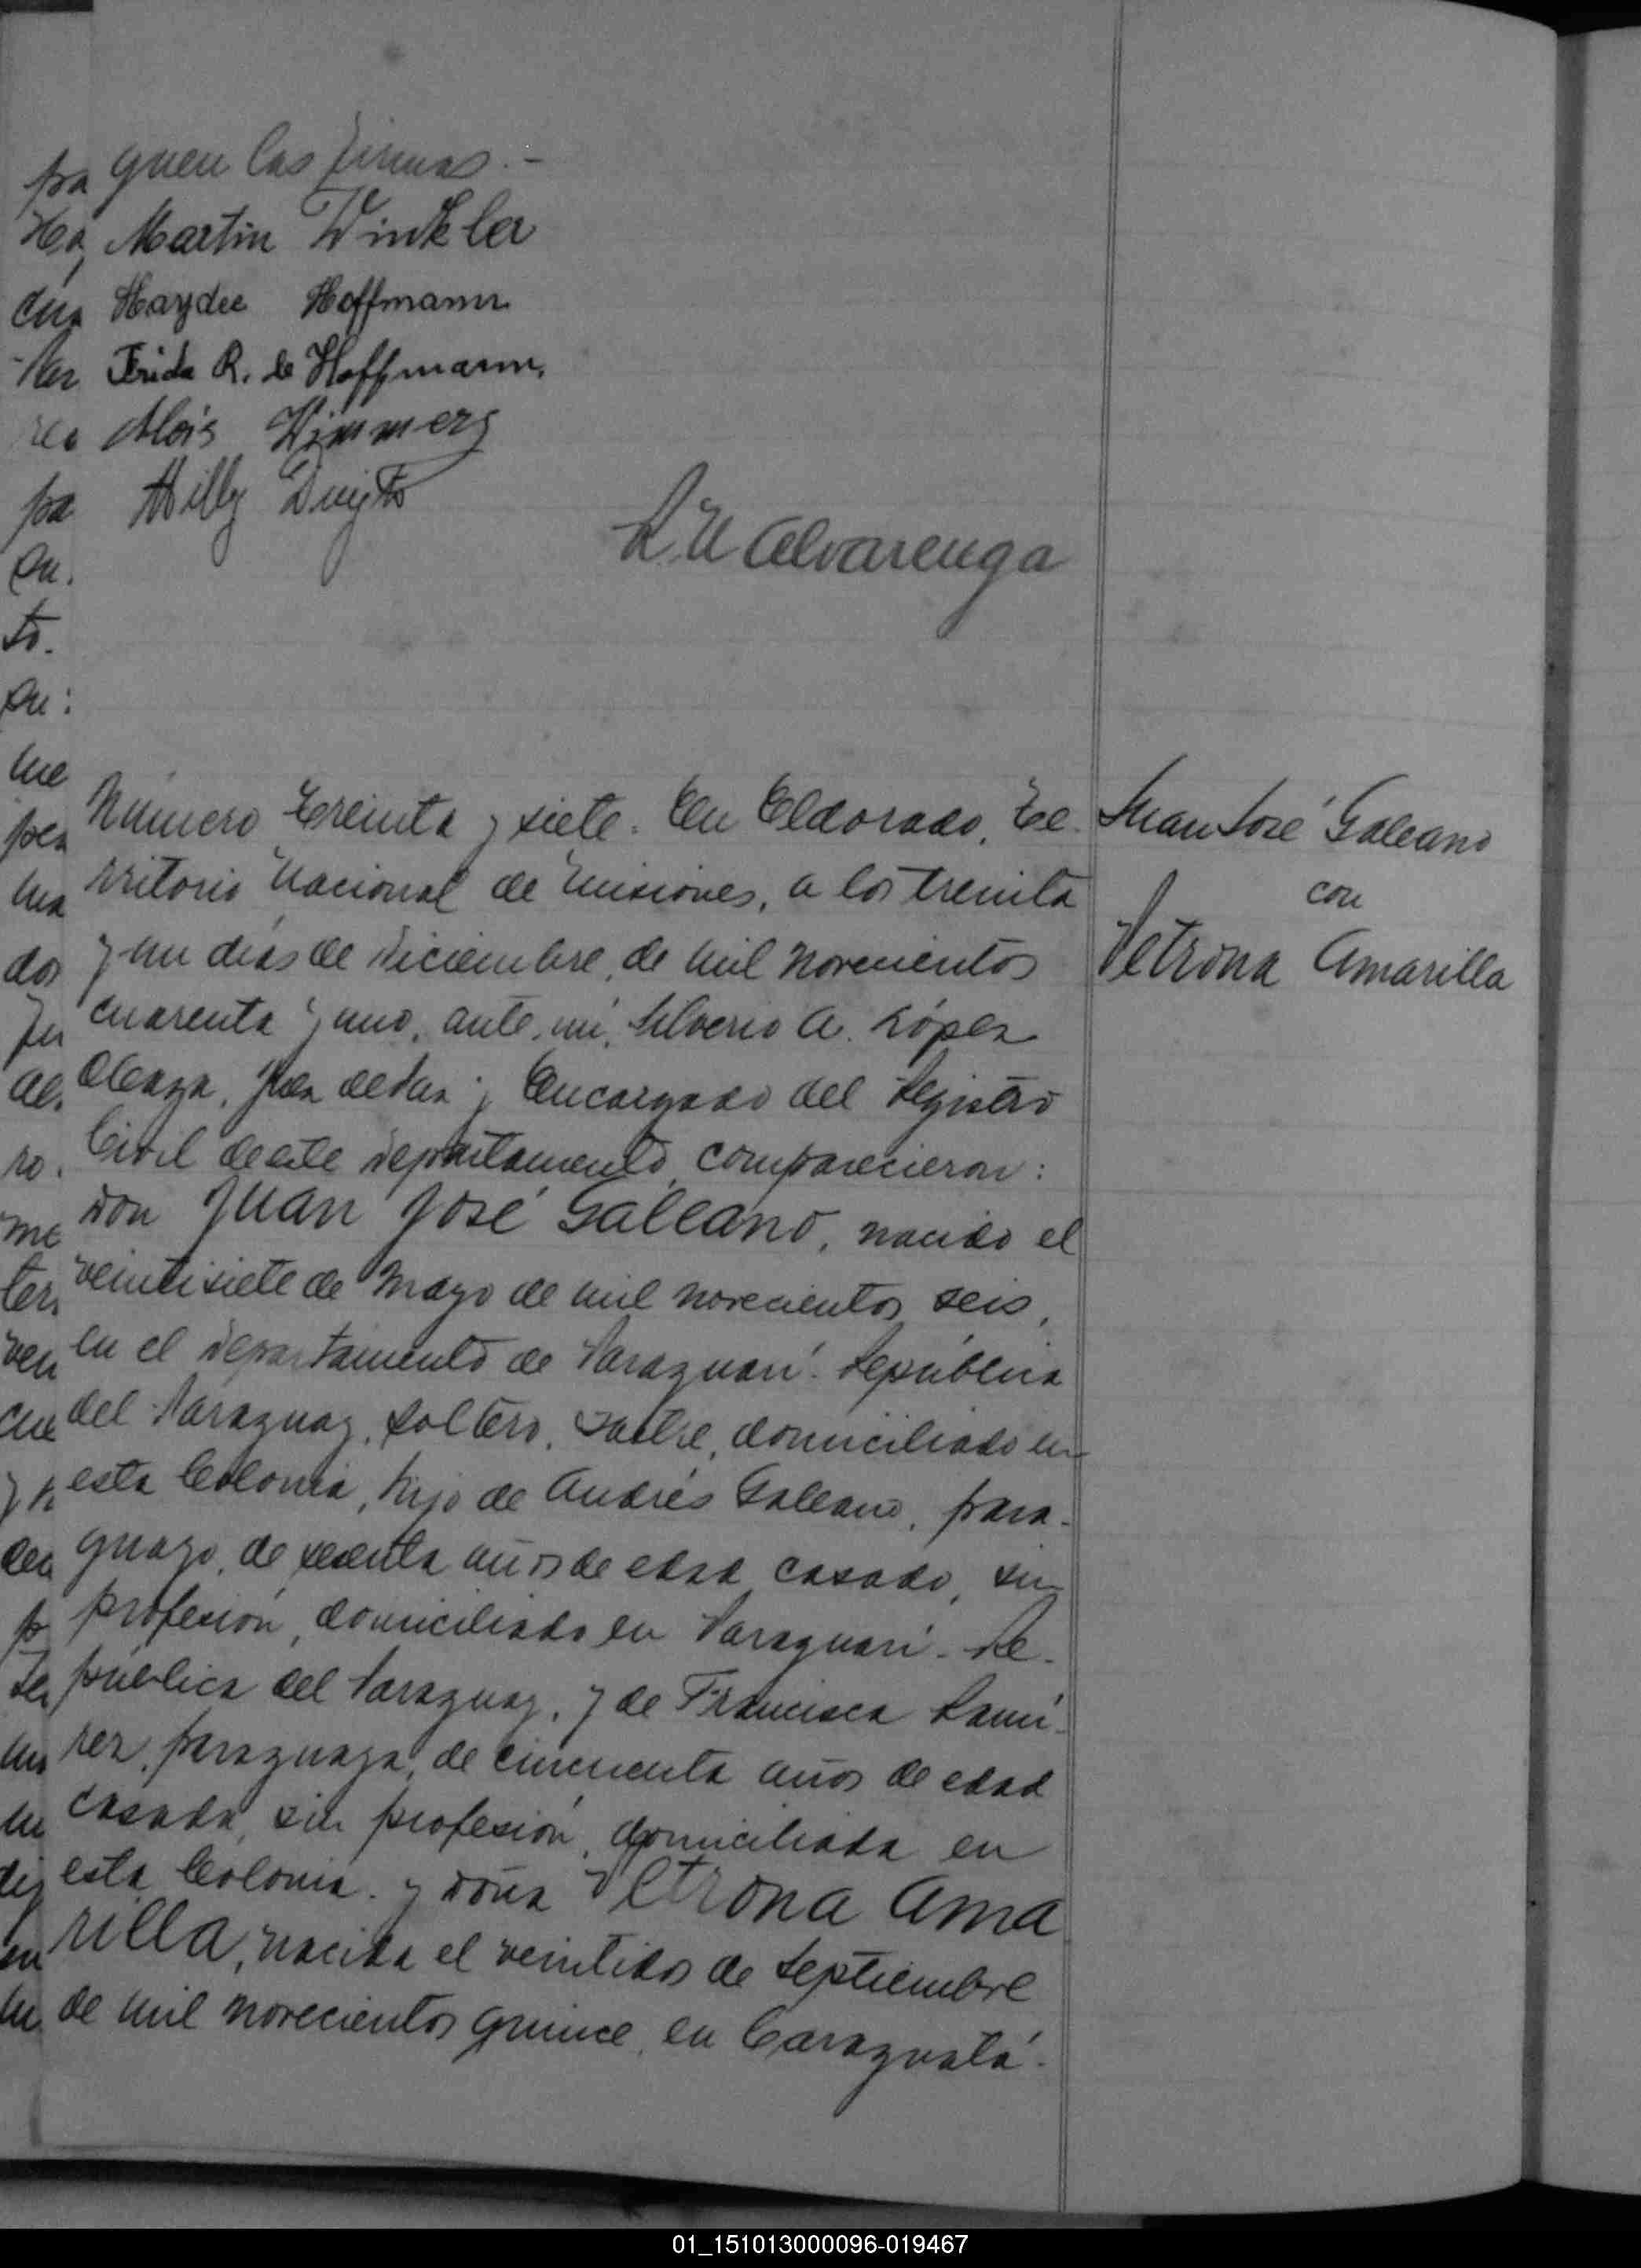 guen las firmas.-
Martin Winkler
Haydee Hoffmann
Frida R. de Hoffmann.
Alois
Willy
Alvarenga
Número treinta y siete. En Eldorado, Te-
rritorio Nacional de Misiones, a los treinta
y un dias de Diciembre, de mil novecientos
cuarenta y uno, ante mi, Silverio A. López
Juez de Paz y Encargado del Registro
Civil de este Departamento, comparecieron:
Don Juan José Galeano, nacido el
veintisiete de Mayo de mil novecientos seis,
en el Departamento de Paraguari. República
del Paraguay, soltero, sastre, domiciliado en
esta Colonia, hijo de Andrés Galeano, para-
guayo, de sesenta años de edad casado, sin
profesión, domiciliado en Paraguari. Re-
pública del Paraguay, y de Francisca Rami-
rez, paraguaya, de cincuenta años de edad
casada, sin profesión, domiciliada en
esta Colonia. y doña Petrona Ama
rilla, nacida el veintidos de Septiembre
de mil novecientos quince, en Caraguatá.
Juan José Galeano
con
Petrona Amarilla
01_151013000096-019467